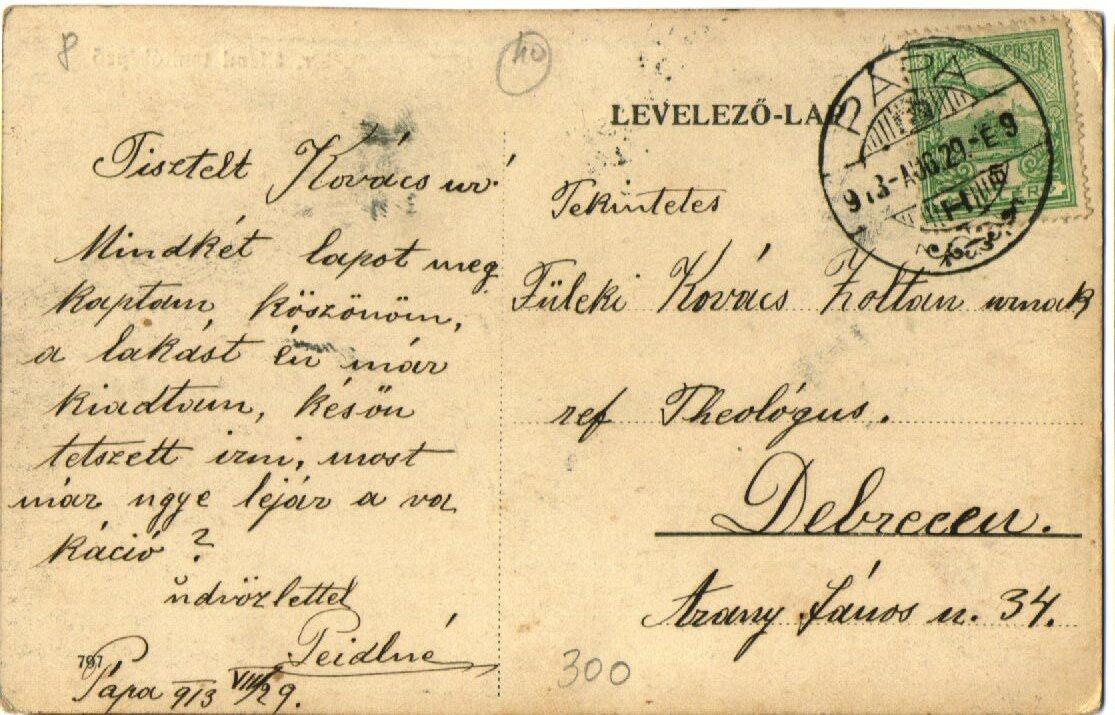 8
40
LEVELEZŐ-LAP
PÁPA
913-AUG.29.-E9
Tisztelt Kovács úr!
Mindkét lapot meg
kaptam köszönöm,
a lakást én már
kiadtam, késön
tetszett irni, most
már ugye lejár a va
káció ?
üdvözlettel
Peidlné
Pápa 913 VIII/29.
797
Tekintetes
Füleki Kovács Zoltan urnak
ref Theológus.
Debrecen.
Arany János u. 34.
300